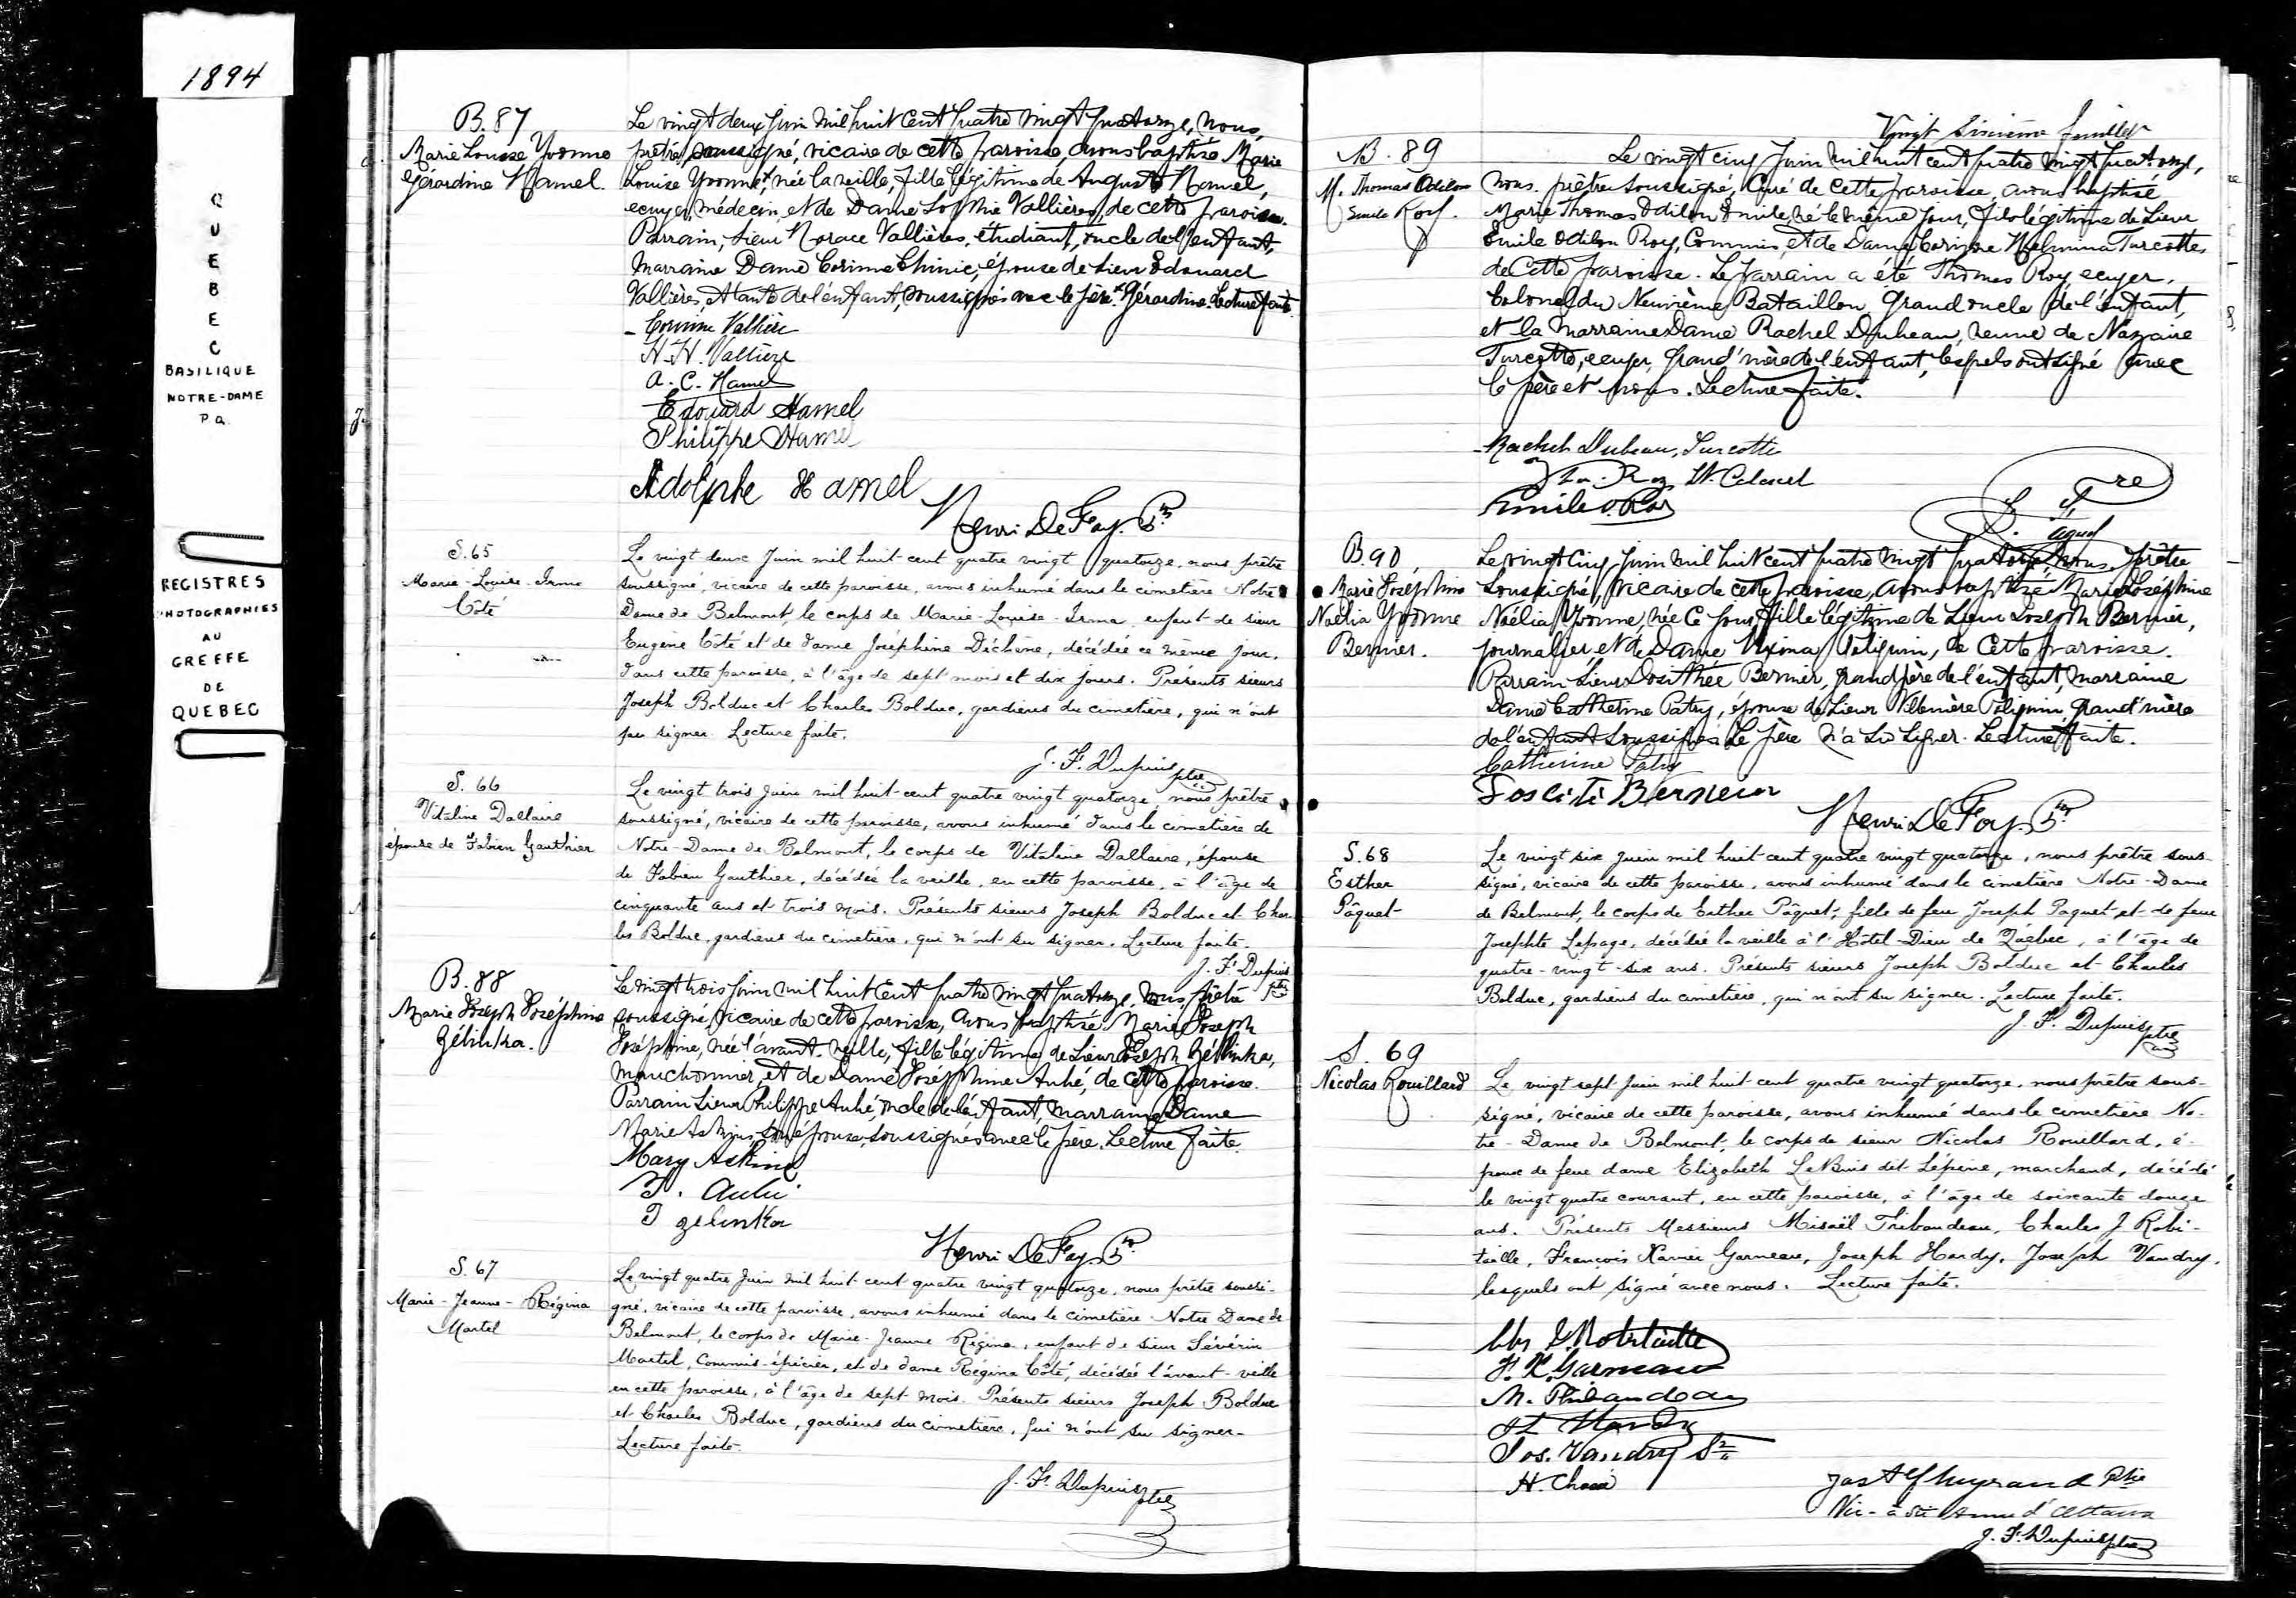 1894
QUEBEC
BASILIQUE
NOTRE-DAME
P.Q.
REGISTRES
PHOTOGRAPHIES
AU
GREFFE
DE
QUEBEC
B. 87
Marie Louise Yvonne
Gérardine Hamel.
Le vingt deux Juin mil huit cent quatre vingt quatorze, nous,
prêtre soussigné, vicaire de cette paroisse, avons baptisé Marie
Louise Yvonne,+ née la veille, fille légitime de Auguste Hamel,
ecuyer, médecin, et de Dame Sophie Vallières, de cette paroisse.
Parrain, Sieur Horace Vallières, étudiant, oncle de l'enfant,
marraine Dame Corinne Chinic, épouse de Sieur Edouard
Vallières, et tante de l'enfant, soussignés avec le père. +Gérardine. Lecture faite.
Corinne Vallière
H. H. Vallière
A. C. Hamel
Edouard Hamel
Philippe Hamel
Adolphe Hamel
Henri DeFoy. Ptre
S. 65
Marie-Louise-Irma
Côté
Le vingt deux Juin mil huit-cent quatre vingt quatorze, nous prêtre
soussigné, vicaire de cette paroisse, avons inhumé dans le cimetière Notre
Dame de Belmont, le corps de Marie-Louise-Irma, enfant de sieur
Eugène Côté et de dame Joséphine Déchêne, décédée ce même jour,
dans cette paroisse, à l'âge de sept mois et dix jours. Présents sieurs
Joseph Bolduc et Charles Bolduc, gardiens du cimetière, qui n'ont
su signer. Lecture faite.
J. F. Dupuis ptre
S. 66
Vitaline Dallaire
épouse de Fabien Gauthier
Le vingt trois Juin mil huit-cent quatre vingt quatorze, nous prêtre
soussigné, vicaire de cette paroisse, avons inhumé dans le cimetière de
Notre-Dame de Belmont, le corps de Vitaline Dallaire, épouse
de Fabien Gauthier, décédée la veille, en cette paroisse, à l'âge de
cinquante ans et trois mois. Présents sieurs Joseph Bolduc et Char
les Bolduc, gardiens du cimetière, qui n'ont su signer. Lecture faite.
J. F. Dupuis ptre
B. 88
Marie Joseph Joséphine
Zélinka.
Le vingt trois Juin mil huit cent quatre vingt quatorze, nous prêtre
soussigné, vicaire de cette paroisse, avons baptisé Marie Joseph
Joséphine, née l'avant-veille, fille légitime de Sieur Joseph Zélinka,
manchonnier, et de Dame Joséphine Aubé, de cette paroisse.
Parrain Sieur Philippe Aubé, oncle de l'enfant, marraine Dame
Marie Askins, son épouse, soussignés avec le père. Lecture faite.
Mary Askins
P. Aubé
J Zelinka
Henri DeFoy. Ptre
S. 67
Marie-Jeanne-Régina
Martel
Le vingt quatre Juin mil huit-cent quatre vingt quatorze, nous prêtre soussi-
gné, vicaire de cette paroisse, avons inhumé dans le cimetière Notre Dame de
Belmont, le corps de Marie-Jeanne Régina, enfant de sieur Sévérin
Martel, commis-épicier, et de dame Régina Côté, décédée l'avant-veille
en cette paroisse, à l'âge de sept mois. Présents sieurs Joseph Bolduc
et Charles Bolduc, gardiens du cimetière, qui n'ont su signer.
Lecture faite.
J. F. Dupuis ptre
Vingt sixième feuillet
B. 89
M. Thomas Odilon
Emile Roy.
Le vingt cinq Juin mil huit cent quatre vingt quatorze,
nous, prêtre soussigné, Curé de cette paroisse, avons baptisé
Marie Thomas Odilon Emile, né le même jour, fils légitime de Sieur
Emile Odilon Roy, Commis, et de Dame Corinne Helmina Turcotte,
de cette paroisse. Le parrain a été Thomas Roy, ecuyer,
Colonel du Neuvième Bataillon, grand oncle de l'enfant,
et la marraine Dame Rachel Dubeau, veuve de Nazaire
Turcotte, ecuyer, grand'mère de l'enfant, lesquels ont signé avec
le père et nous. Lecture faite.
Rachel Dubeau, Turcotte
Tho. Roy Lt. Colonel
Emile O. Roy
B. 90,
Marie Joséphine
Noélia Yvonne
Bernier.
Le vingt cinq Juin mil huit cent quatre vingt quatorze, nous, prêtre
soussigné, vicaire de cette paroisse, avons baptisé Marie Joséphine
Noélia Yvonne, née ce jour, fille légitime de Sieur Joseph Bernier,
journalier, et de Dame Poliquin, de cette paroisse.
Parrain Sieur Dosithée Bernier, grand père de l'enfant, marraine
Dame Catherine Patry, épouse de Sieur Poliquin, grand'mère
de l'enfant soussignés. Le père n'a su signer. Lecture faite.
Catherine Patry
Bernier
Henri DeFoy. Ptre
S. 68
Esther
Pâquet
Le vingt six Juin mil huit-cent quatre vingt quatorze, nous prêtre sous-
signé, vicaire de cette paroisse, avons inhumé dans le cimetière Notre-Dame
de Belmont, le corps de Esther Pâquet, fille de feu Joseph Paquet et de feue
Josephte Lepage, décédée la veille à l'Hôtel-Dieu de Québec, à l'âge de
quatre-vingt-six ans. Présents sieurs Joseph Bolduc et Charles
Bolduc, gardiens du cimetière, qui n'ont su signer. Lecture faite.
J. F. Dupuis ptre
S. 69
Nicolas Rouillard
Le vingt sept Juin mil huit cent quatre vingt quatorze, nous prêtre sous-
signé, vicaire de cette paroisse, avons inhumé dans le cimetière No-
tre-Dame de Belmont, le corps de sieur Nicolas Rouillard, é-
poux de feue dame Elizabeth LeBuis dit Lépine, marchand, décédé
le vingt quatre courant, en cette paroisse, à l'âge de soixante douze
ans. Présents Messieurs Misaël Thibaudeau, Charles J. Robi-
taille, François Xavier Garneau, Joseph Hardy, Joseph Vandry,
lesquels ont signé avec nous. Lecture faite.
Chs J. Robitaille
F. X. Garneau
M. Thibaudeau
Jos. Vandry
J. F. Dupuis ptre